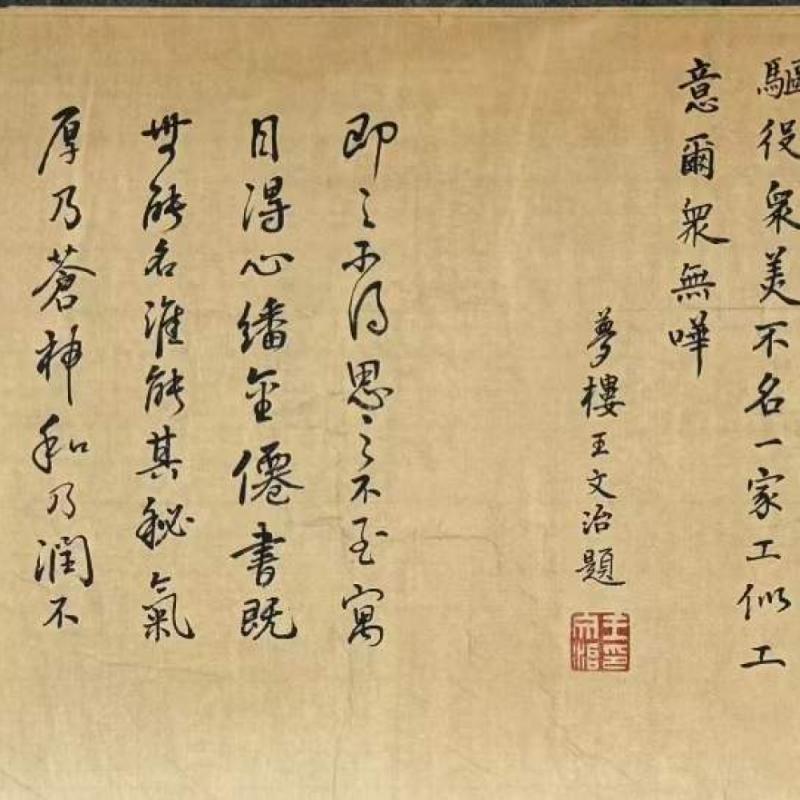 驅役衆美不名一家工似工
意爾衆無嘩
夢樓王文治題
王文治印
即之不得思之不至寓
目得心繙金僊書既
無能名誰能其秘氣
厚乃蒼神和乃潤不